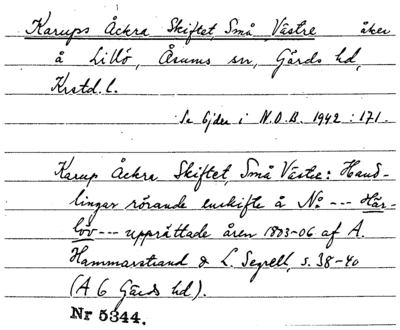 Karups Åckra Skiftet, Små Västre åker
å Lillö, Åsums sn, Gärds hd,
Krstd. l.
Se Ejder i N.O.B. 1942 : 171.
Karup Åckra Skiftet, Små Västre: Hand-
lingar rörande enskifte å No --- Här-
löv --- upprättade åren 1803-06 af A.
Hammarstrand & L. Segrell, s. 38-40
(A 6 Gärds hd).
Nr 5344.